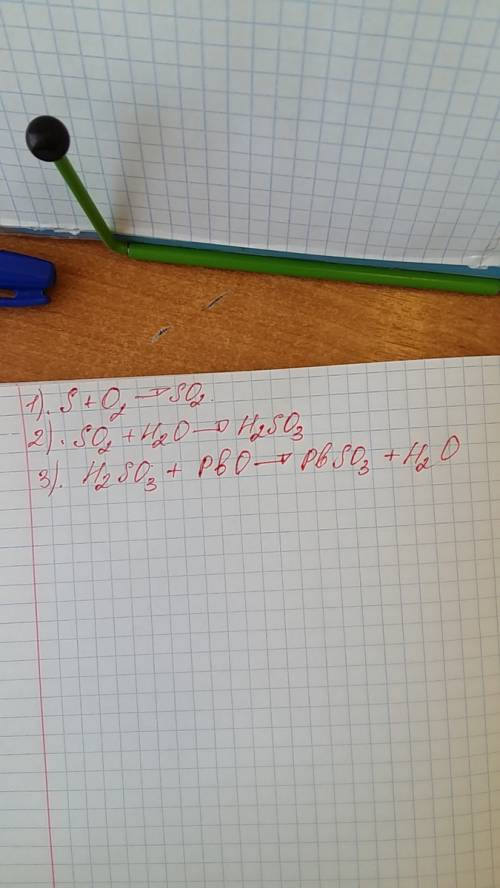 1). S + O₂ → SO₂.
2). SO₂ + H₂O → H₂SO₃
3). H₂SO₃ + PbO → PbSO₃ + H₂O